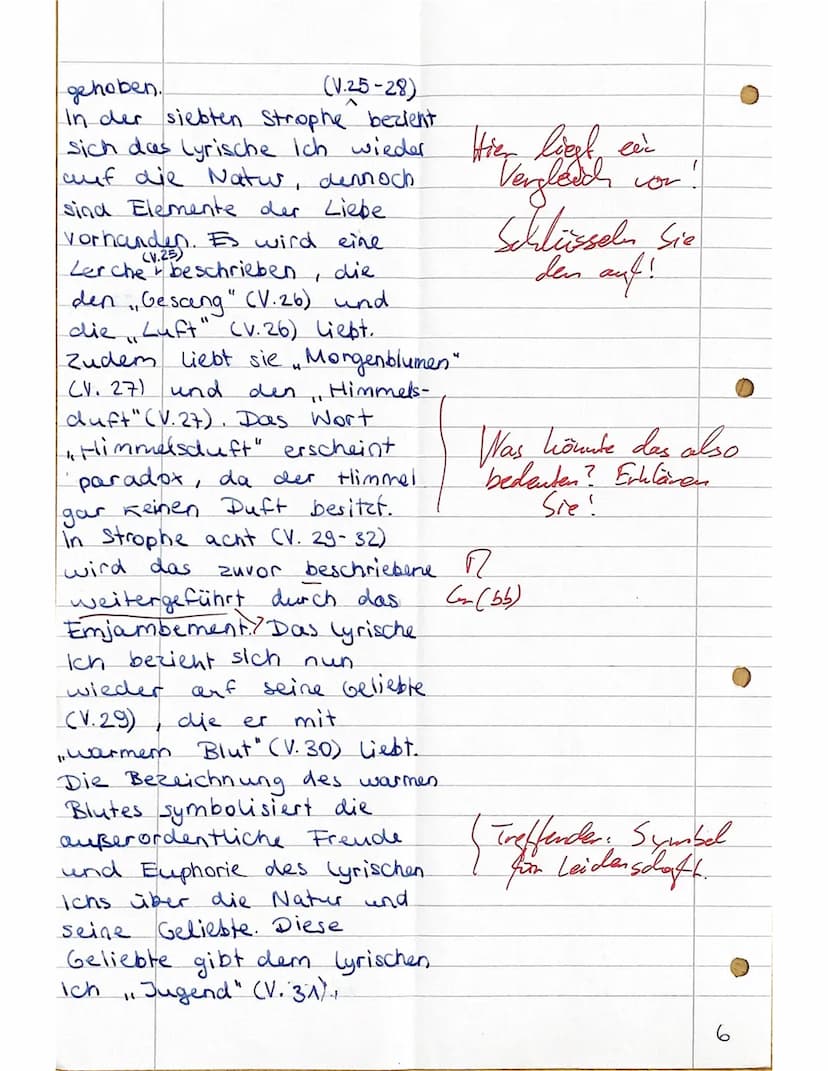 gehoben. (V.25-28)
In der siebten Strophe ^ bezieht
sich das Lyrische Ich wieder
auf die Natur, dennoch
sind Elemente der Liebe
vorhanden. Es wird eine
(V.25)
Lerche beschrieben, die
den „Gesang" (V.26) und
die „Luft" (V.26) liebt.
Zudem liebt sie „Morgenblumen"
(V. 27) und den „Himmels-
duft" (V.27). Das Wort
„Himmelsduft" erscheint
paradox, da der Himmel
gar keinen Duft besitzt.
In Strophe acht (V. 29-32)
wird das zuvor beschriebene
weitergeführt durch das
Emjambement. Das Lyrische
Ich bezieht sich nun
wieder auf seine Geliebte
(V.29), die er mit
„warmem Blut" (V.30) liebt.
Die Bezeichnung des warmen
Blutes symbolisiert die
außerordentliche Freude
und Euphorie des Lyrischen
Ichs über die Natur und
seine Geliebte. Diese
Geliebte gibt dem Lyrischen
Ich „Jugend" (V. 31),
Hier liegt ein
Vergleich vor!
Schlüsseln Sie
den auf!
Was könnte das also
bedeuten? Erklären
Sie!
(bb)
Treffender: Symbol
für Leidenschaft.
6